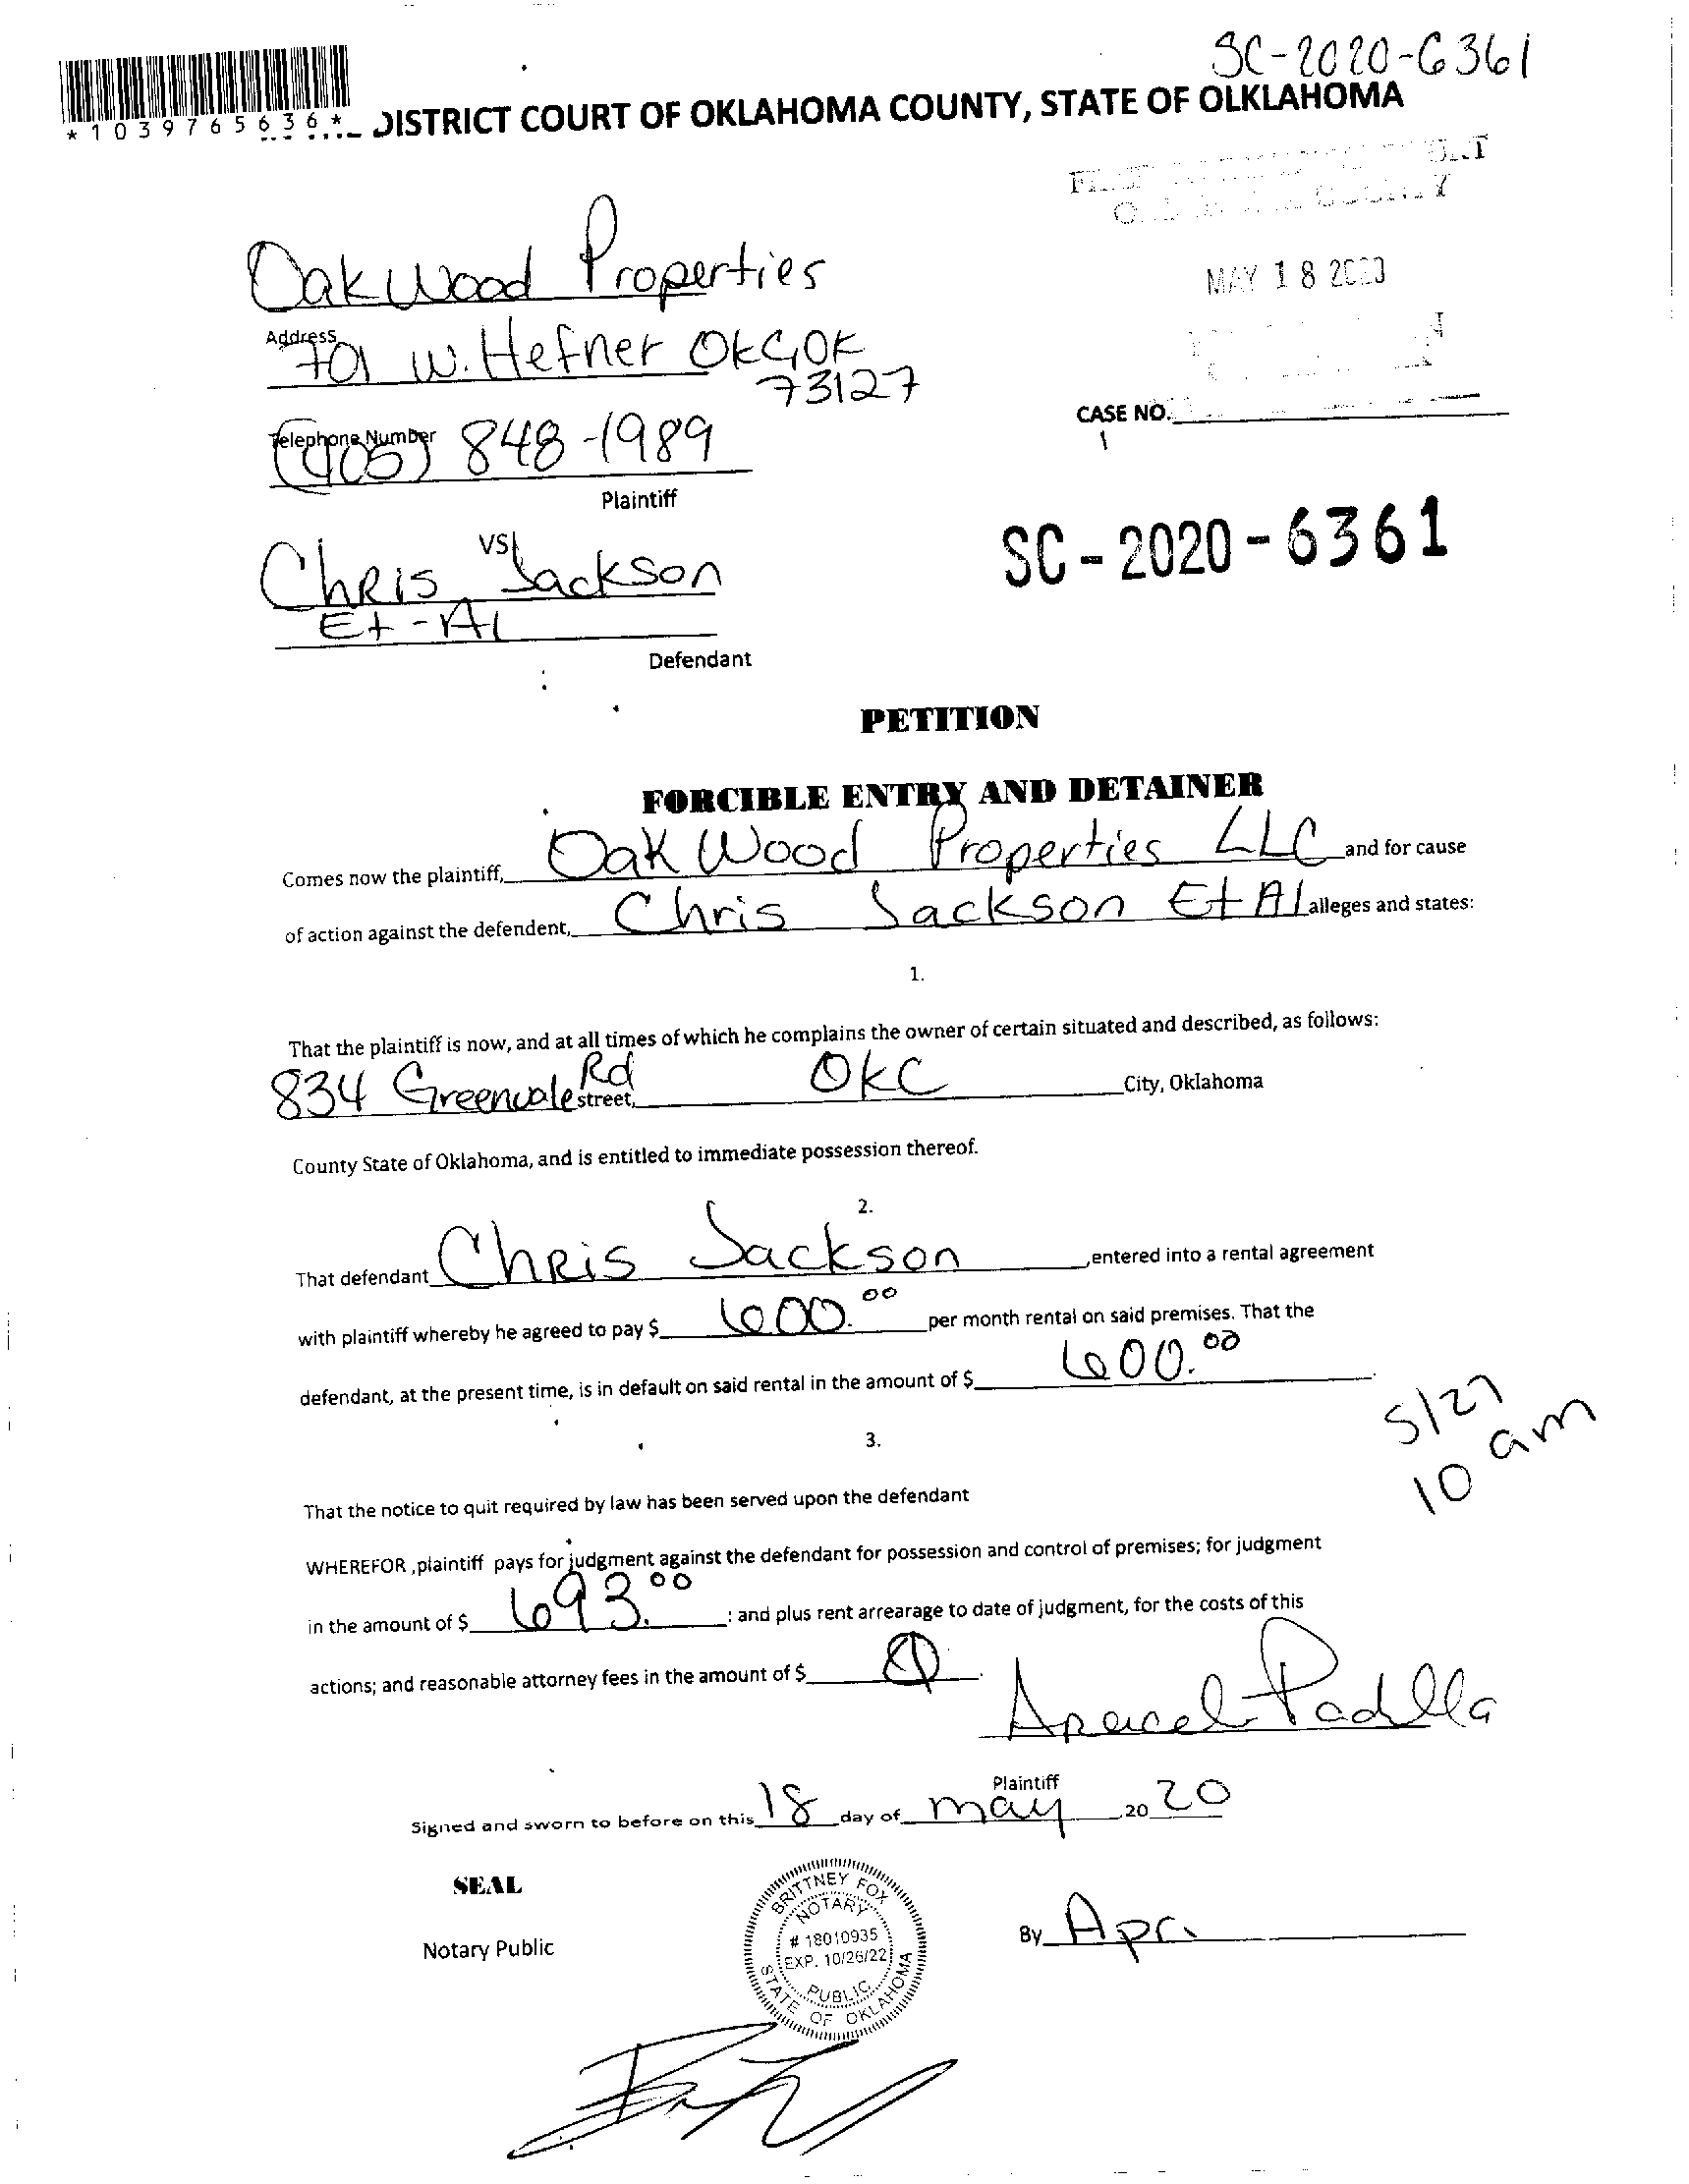 SC-2020-6361
*1039765636*
DISTRICT COURT OF OKLAHOMA COUNTY, STATE OF OLKLAHOMA
COUNTY
Oakwood Properties
MAY 18 2020
Address
701 W. Hefner OKC, OK
73127
CASE NO.
Telephone Number
(405) 848-1989
Plaintiff
VS
SC-2020-6361
Chris Jackson
Et-Al
Defendant
PETITION
FORCIBLE ENTRY AND DETAINER
Comes now the plaintiff, Oak Wood Properties LLC and for cause
of action against the defendent, Chris Jackson Et Al alleges and states:
1.
That the plaintiff is now, and at all times of which he complains the owner of certain situated and described, as follows:
834 Greenvale Rd street, OKC City, Oklahoma
County State of Oklahoma, and is entitled to immediate possession thereof.
2.
That defendant Chris Jackson ,entered into a rental agreement
with plaintiff whereby he agreed to pay $ 600.00 per month rental on said premises. That the
defendant, at the present time, is in default on said rental in the amount of $ 600.00
5/27
10 am
3.
That the notice to quit required by law has been served upon the defendant
WHEREFOR ,plaintiff pays for judgment against the defendant for possession and control of premises; for judgment
in the amount of $ 693.00 : and plus rent arrearage to date of judgment, for the costs of this
actions; and reasonable attorney fees in the amount of $
Araceli Padilla
Plaintiff
Signed and sworn to before on this 18 day of may ,20 20
SEAL
BRITTNEY FOX
NOTARY
# 18010935
EXP. 10/26/22
PUBLIC
STATE OF OKLAHOMA
Notary Public
By